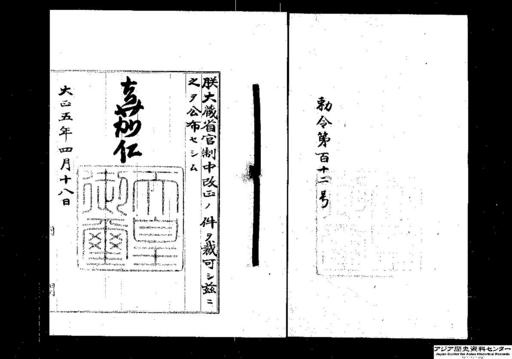 勅令第百十二号
朕大蔵省官制中改正ノ件ヲ裁可シ茲ニ
之ヲ公布セシム
嘉仁
天皇御璽
大正五年四月十八日
アジア歴史資料センター
Japan Center for Asian Historical Records